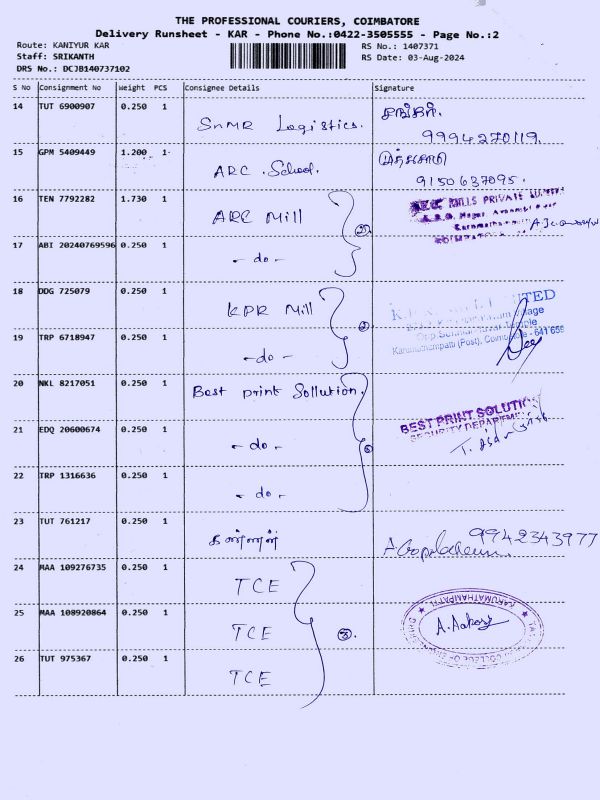 THE PROFESSIONAL COURIERS, COIMBATORE
Delivery Runsheet - KAR - Phone No.:0422-3505555 - Page No.:2
Route: KANIYUR KAR
RS No.: 1407371
Staff: SRIKANTH
RS Date: 03-Aug-2024
DRS No.: DCJB140737102
S No Consignment No Weight PCS Consignee Details Signature
14 TUT 6900907 0.250 1
SnMR Logistics.
9994270119.
15 GPM 5409449 1.200 1
ARC School.
9150637095.
16 TEN 7792282 1.730 1
ARC Mill
MILLS PRIVATE
17 ABI 20240769596 0.250 1
- do -
18 DDG 725079 0.250 1
KPR Mill
Karumathampatti (Post), Coimbatore - 641 659
19 TRP 6718947 0.250 1
- do -
20 NKL 8217051 0.250 1
Best print Sollution.
BEST PRINT SOLUTION
SECURITY DEPARTMENT
21 EDQ 20600674 0.250 1
- do -
22 TRP 1316636 0.250 1
- do -
23 TUT 761217 0.250 1
கண்ணன்
9942343977
24 MAA 109276735 0.250 1
TCE
25 MAA 108920864 0.250 1
TCE
③.
KARUMATHAMPATTI
26 TUT 975367 0.250 1
TCE